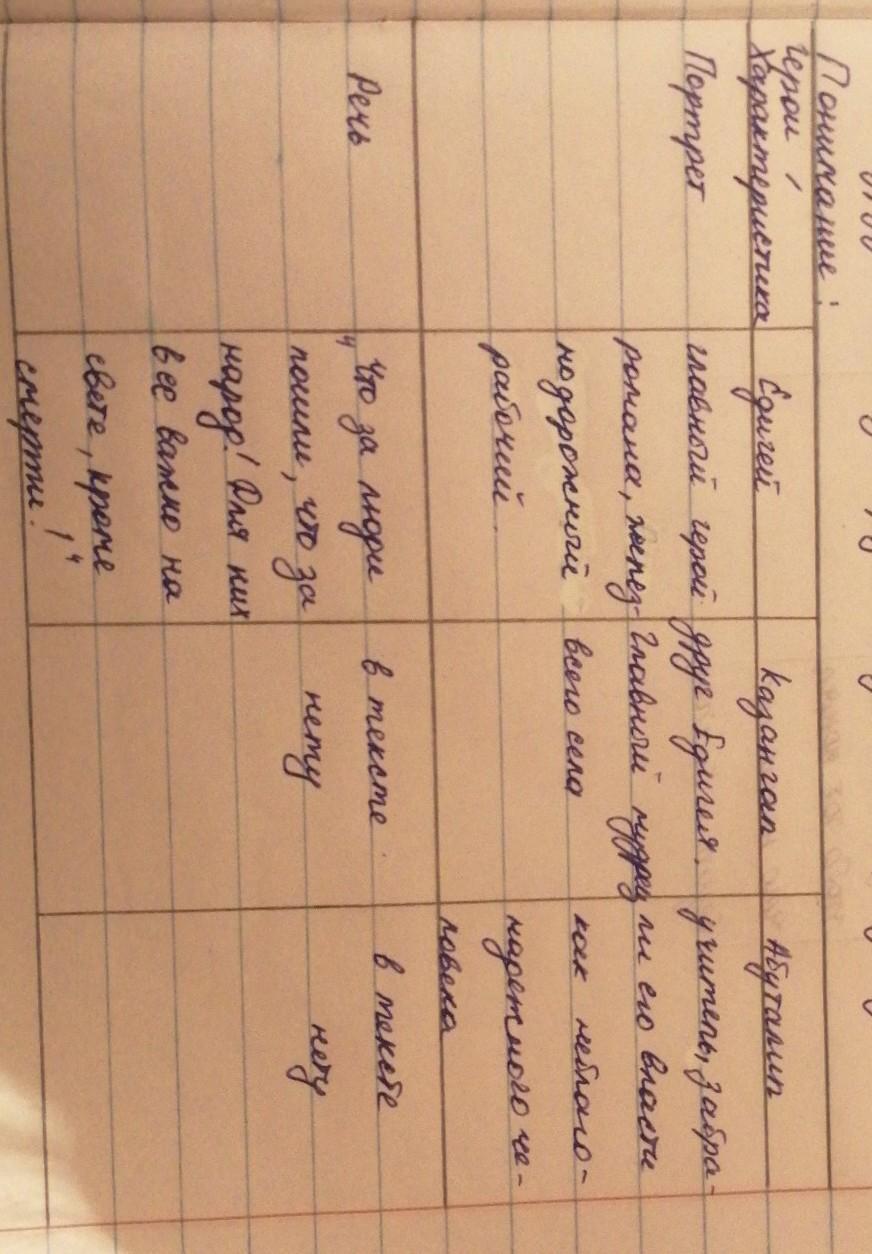 Понимание:
Герои /
Характеристика
Едигей
Казангап
Абуталип
Портрет
главный герой
романа, желез-
нодорожный
рабочий.
друг Едигея.
Главный мудрец
всего села
учитель, забра-
ли его власти
как неблаго-
надежного че-
ловека
Речь
"Что за люди
пошли, что за
народ! Для них
все важно на
свете, кроме
смерти!"
в тексте
нету
в тексте
нету